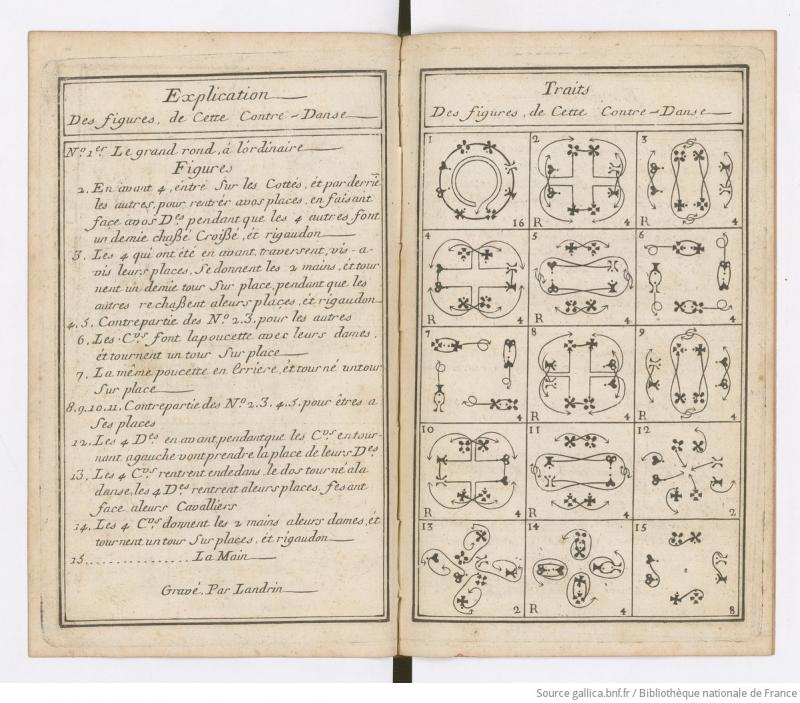 Explication
Des figures, de Cette Contre-Danse
N.º 1.er Le grand rond, á lórdinaire
Figures
2. En avant 4, entré Sur les Cottés, ét par derrie
les autres, pour rentrér avos places, en faisant
face avos D.es pendant que les 4 autres, font
un demie chaßé Croißé, ét rigaudon
3. Les 4 qui ont été en avant, traversent, vis-a-
vis leurs places, Se donnent les 2 mains, ét tour
nent un demie tour Sur place, pendant que les
autres rechaßent aleurs places, ét rigaudon
4, 5, Contrepartie des N.º 2.3. pour les autres
6, Les C.vrs font la poucette avec leurs dames,
ét tournent un tour Sur place
7, La même poucette en Erriere, ét tourné untour
Sur place
8.9.10.11. Contrepartie des N.º 2.3. 4.5. pour êtres a
Ses places
12. Les 4 D.es en avant, pendantque les C.vrs entour-
nant agauche vont prendre la place de leurs D.es
13. Les 4 C.vrs rentrent endedans, le dos tourné ala
danse, les 4 D.es rentrent aleurs places, fesant
face aleurs Cavalliers
14. Les 4 C.vrs donnent les 2 mains aleurs dames, ét
tournent un tour Sur places, ét rigaudon
15. ................ La Main
Gravé, Par Landrin
Traits
Des figures, de Cette Contre-Danse
1 2 3
16 R 4 R 4
4 5 6
R 4 R 4 4
7 8 9
4 R 4 R 4
10 11 12
R 4 R 4 2
13 14 15
2 R 4 8
Source gallica.bnf.fr / Bibliothèque nationale de France